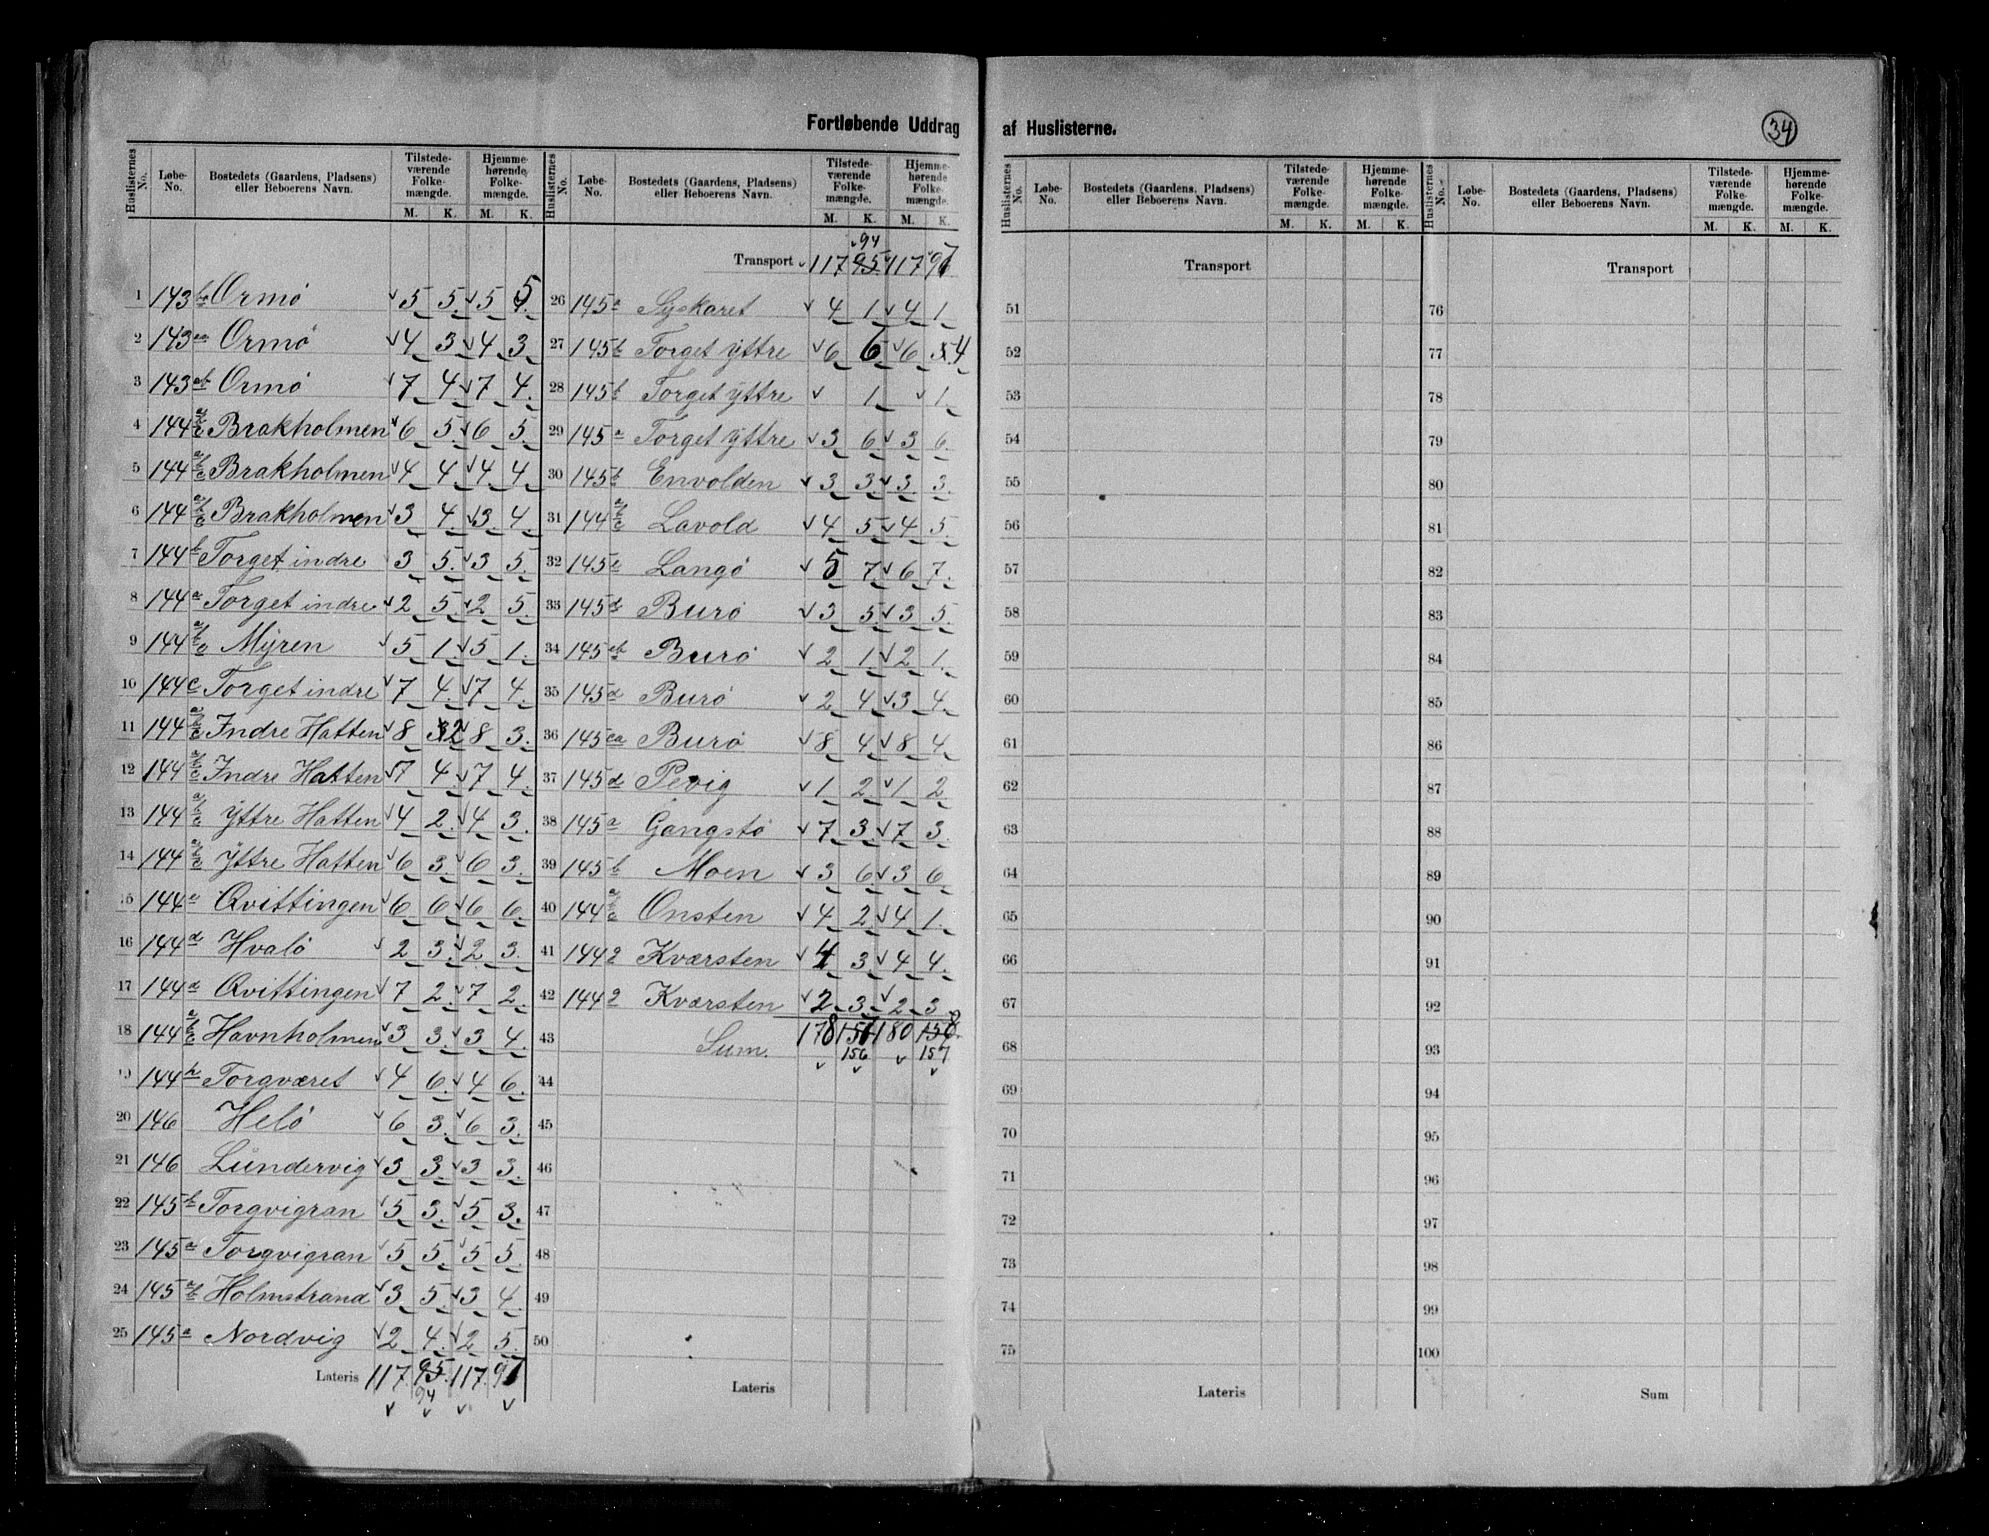 Fortløbende Uddrag af Huslisterne.
34
Huslisternes No. Løbe-No. Bostedets (Gaardens, Pladsens) eller Beboerens Navn. Tilstedeværende Folkemængde. M. K. Hjemmehørende Folkemængde. M. K.
1 143 Ormø 5 5 5 5
2 143 Ormø 4 3 4 3
3 143 ab Ormø 7 4 7 4
4 144 Brakholmen 6 5 6 5
5 144 Brakholmen 4 4 4 4
6 144 Brakholmen 3 4 3 4
7 144 b Torget indre 3 5 3 5
8 144 a Torget indre 2 5 2 5
9 144 Myren 5 1 5 1
10 144 c Torget indre 7 4 7 4
11 144 Indre Hatten 8 2 8 3
12 144 Indre Hatten 7 4 7 4
13 144 Yttre Hatten 4 2 4 3
14 144 Yttre Hatten 6 3 6 3
15 144 a Qvittingen 6 6 6 6
16 144 d Hvalø 2 3 2 3
17 144 d Qvittingen 7 2 7 2
18 144 Havnholmen 3 3 3 4
19 144 h Torgværet 4 6 4 6
20 146 Helø 6 3 6 3
21 146 Lundervig 3 3 3 3
22 145 b Torgvigran 5 3 5 3
23 145 a Torgvigran 5 5 5 5
24 145 Holmstrand 3 5 3 4
25 145 a Nordvig 2 4 2 5
Lateris 117 95 117 97
94
Huslisternes No. Løbe-No. Bostedets (Gaardens, Pladsens) eller Beboerens Navn. Tilstedeværende Folkemængde. M. K. Hjemmehørende Folkemængde. M. K.
94
Transport 117 95 117 97
26 145 a Sykaret 4 1 4 1
27 145 b Torget yttre 6 6 6 4
28 145 b Torget yttre 1 1
29 145 a Torget yttre 3 6 3 6
30 145 b Envolden 3 3 3 3
31 144 Lavold 4 5 4 5
32 145 Langø 5 7 6 7
33 145 Burø 3 5 3 5
34 145 Burø 2 1 2 1
35 145 d Burø 2 4 3 4
36 145 ca Burø 8 4 8 4
37 145 d Pevig 1 2 1 2
38 145 a Gangstø 7 3 7 3
39 145 b Moen 3 6 3 6
40 144 Onsten 4 2 4 1
41 144 Kværsten 4 3 4 4
42 144 Kværsten 2 3 2 3
43 Sum. 178 157 180 158
156 157
44
45
46
47
48
49
50
Lateris
Huslisternes No. Løbe-No. Bostedets (Gaardens, Pladsens) eller Beboerens Navn. Tilstedeværende Folkemængde. M. K. Hjemmehørende Folkemængde. M. K.
Transport
51
52
53
54
55
56
57
58
59
60
61
62
63
64
65
66
67
68
69
70
71
72
73
74
75
Lateris
Huslisternes No. Løbe-No. Bostedets (Gaardens, Pladsens) eller Beboerens Navn. Tilstedeværende Folkemængde. M. K. Hjemmehørende Folkemængde. M. K.
Transport
76
77
78
79
80
81
82
83
84
85
86
87
88
89
90
91
92
93
94
95
96
97
98
99
100
Sum